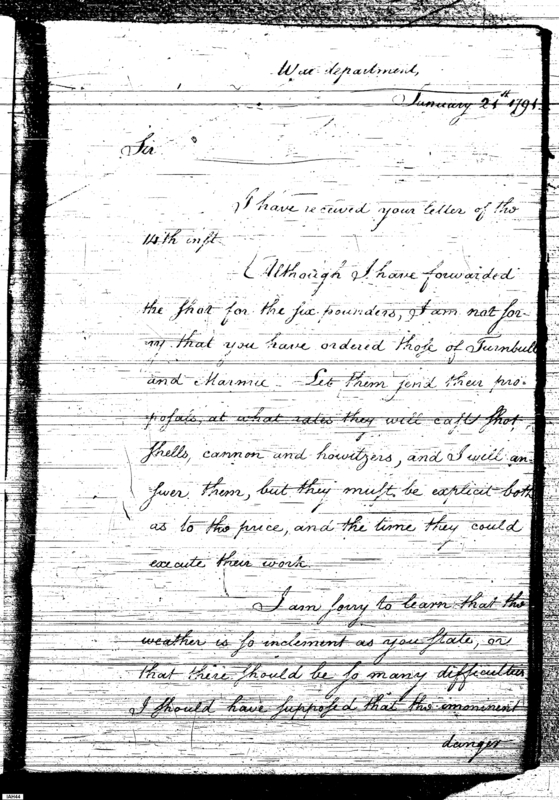 War department,
January 21st 1791
Sir
I have received your letter of the
14th inst.
Although I have forwarded
the shot for the six pounders, I am not sor-
ry that you have ordered those of Turnbull
and Marmie Let them send their pro-
posals, at what rates they will cast shot,
shells, cannon and howitzers, and I will an-
swer them, but they must be explicit both
as to the price, and the time they could
execute their work.
I am sorry to learn that the
weather is so inclement as you state, or
that there should be so many difficulties
I should have supposed that the imminent
danger